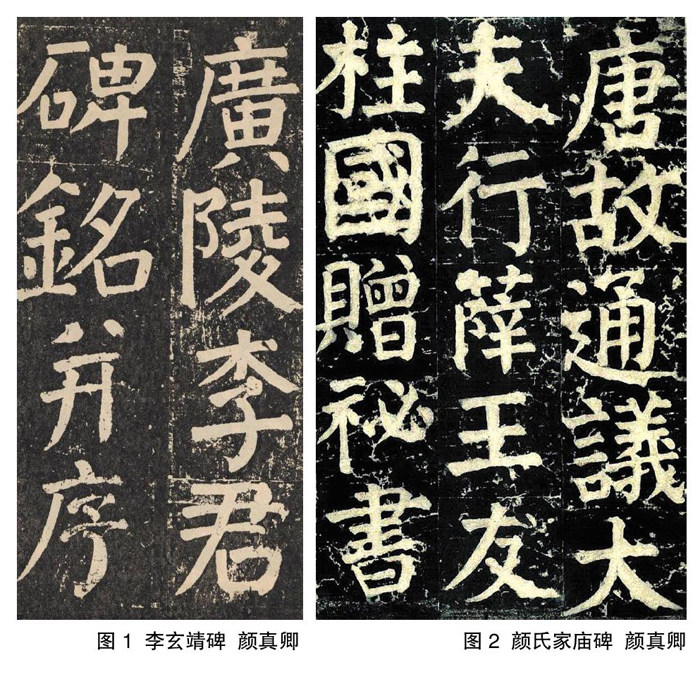 廣陵李君
碑銘并序
唐故通議大
夫行薛王友
柱國贈祕書
图 1 李玄靖碑 颜真卿
图 2 颜氏家庙碑 颜真卿